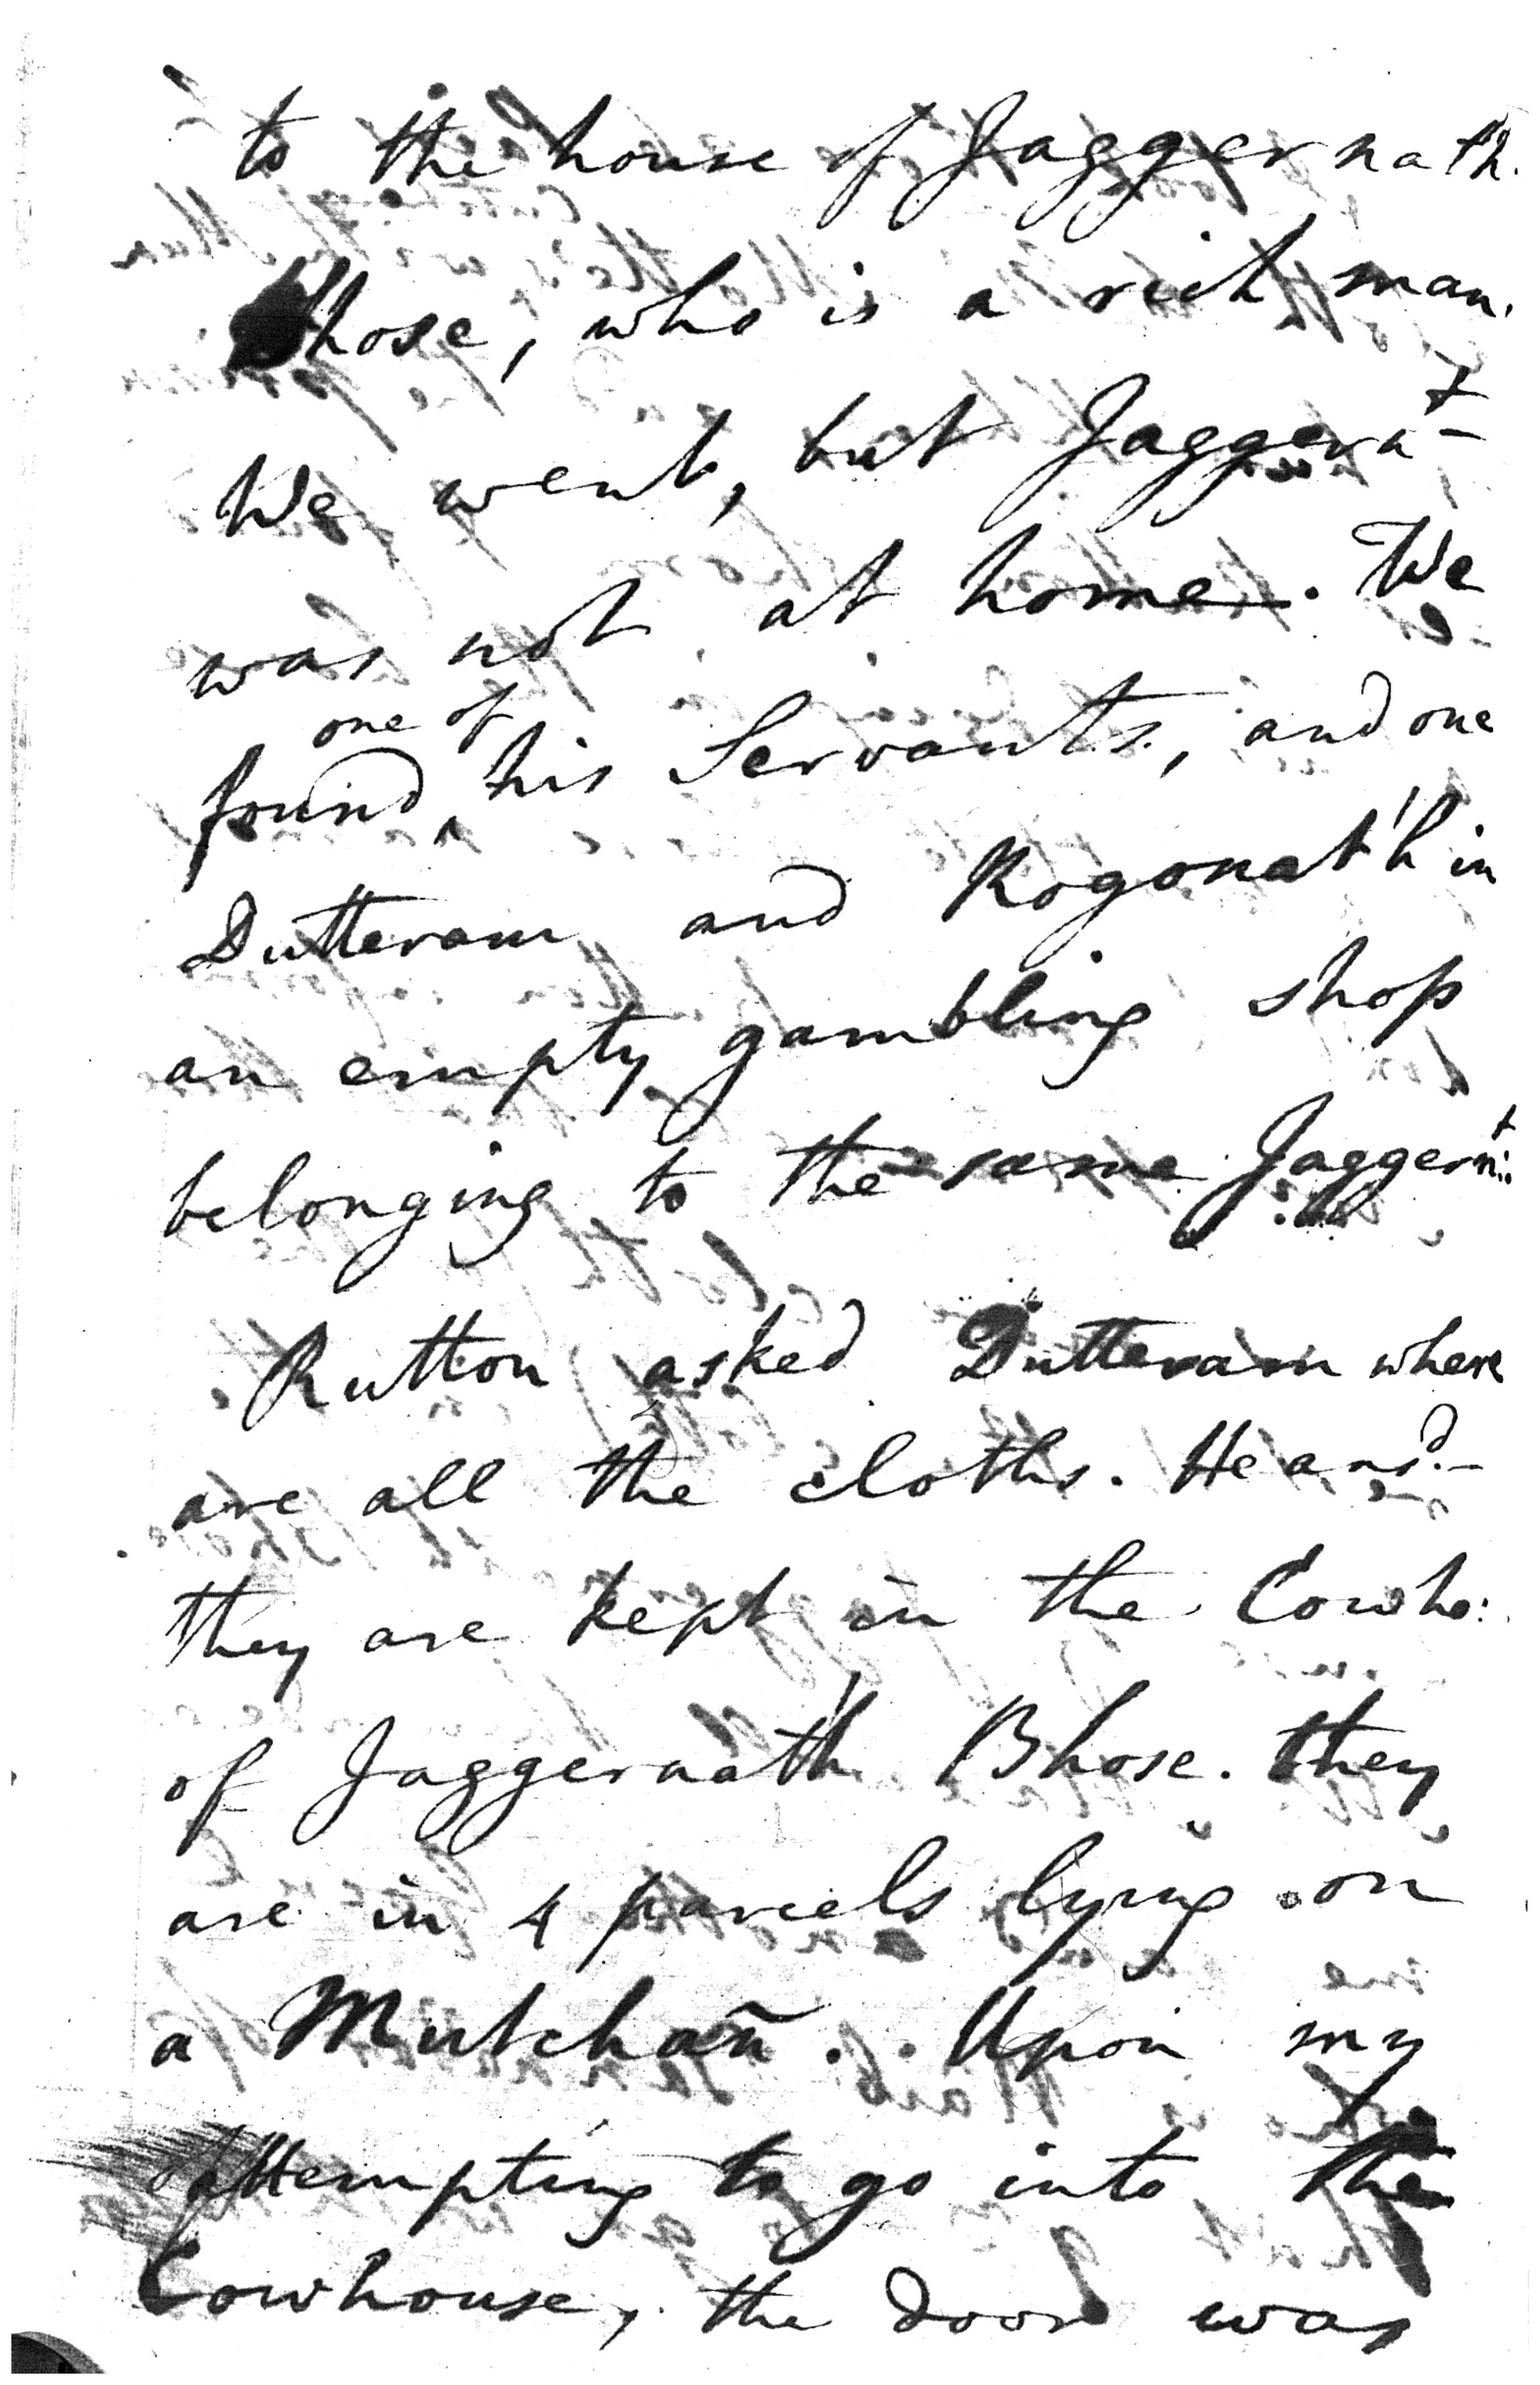 to the house of Jaggernath.
Bhose, who is a rich man.
We went, but Jaggernt
was not at home. We
one of
found ^ his Servants, and one
Dutteram and Rogonat'h in
an empty gambling shop
belonging to the same Jaggernt:
Rutton asked Dutteram where
are all the cloths. He ansd.–
they are kept in the Cowho:
of Jaggernat'h Bhose. they
are in 4 parcels lying on
a Mutchañ. Upon my
attempting to go into the
Cowhouse, the door was